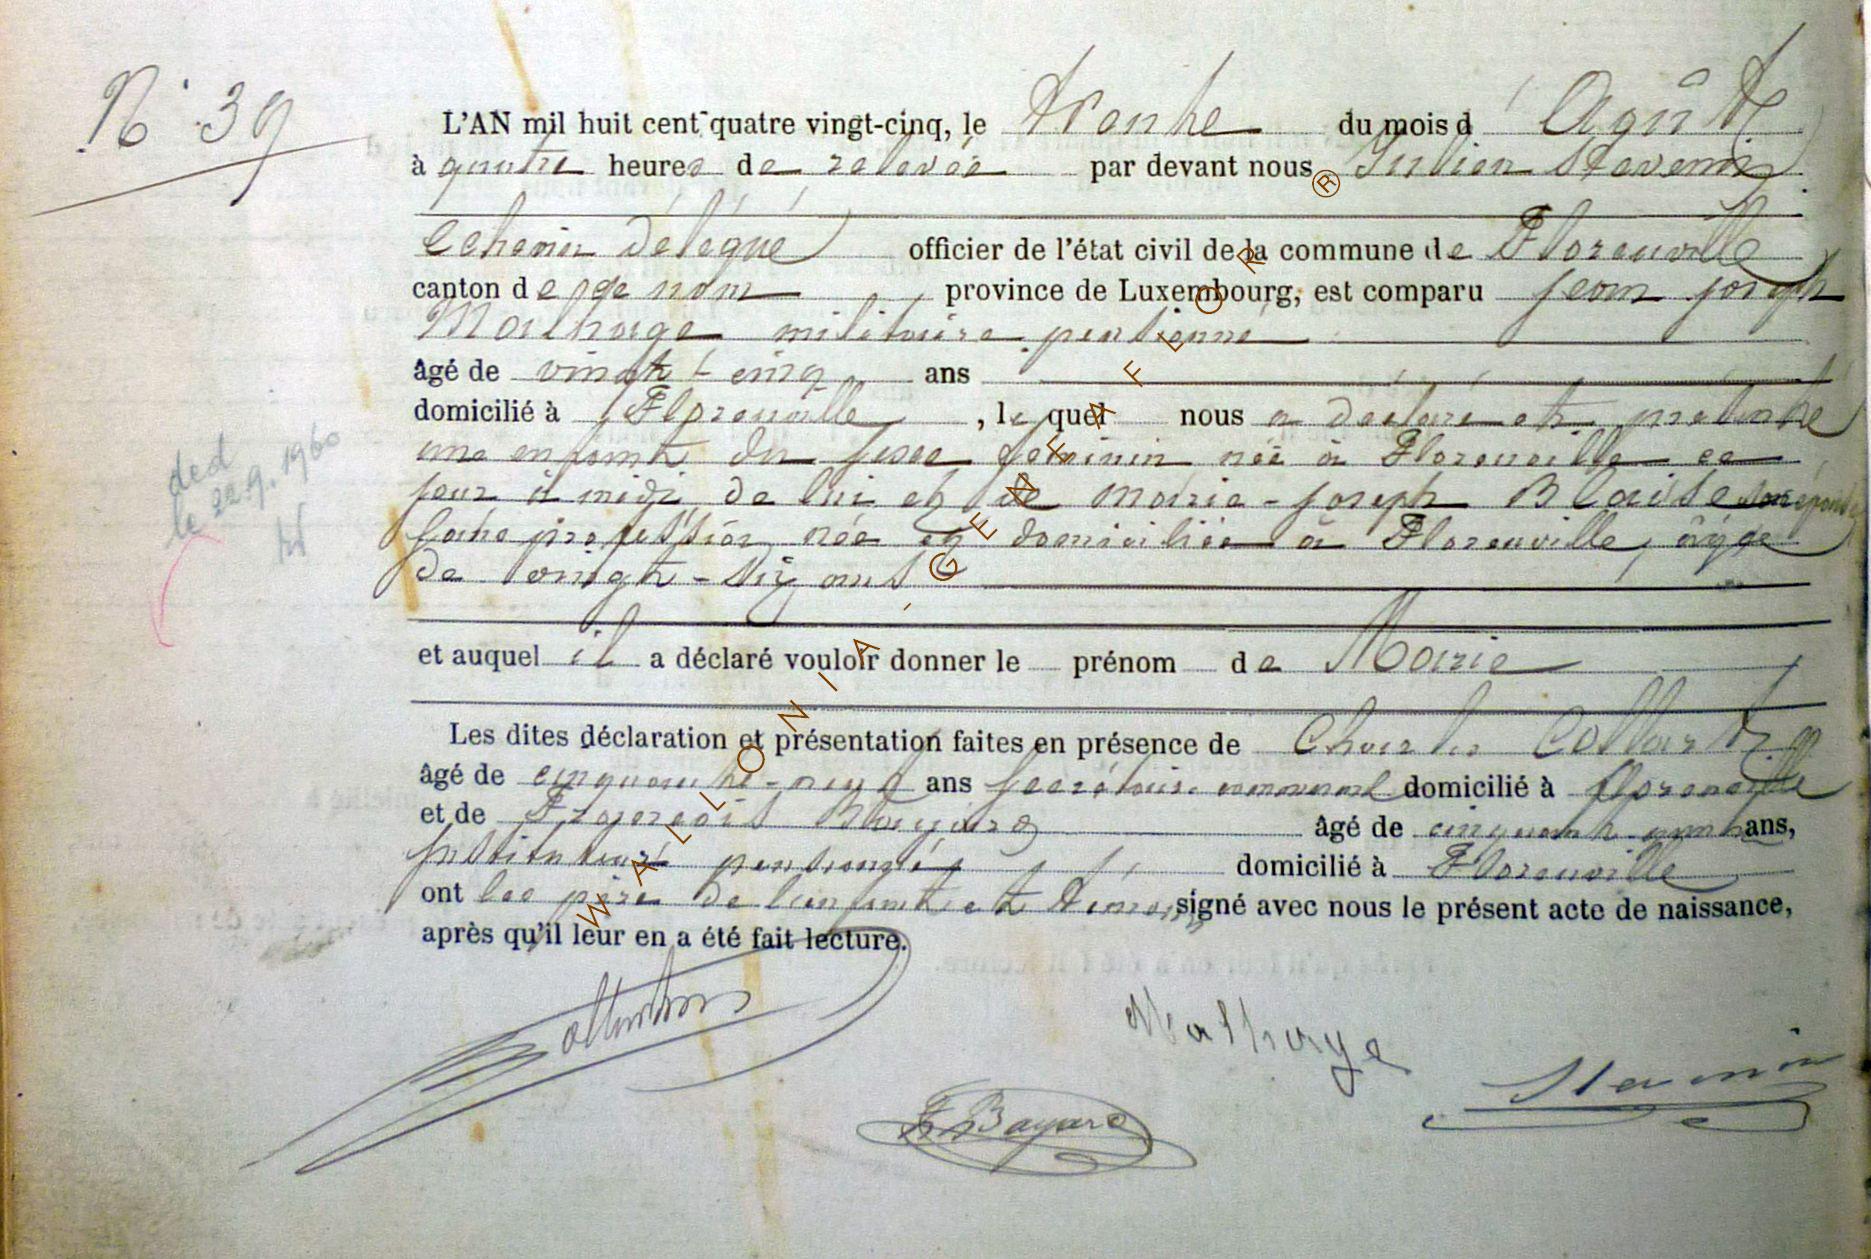 N° 39
L'AN mil huit cent quatre vingt-cinq, le trente du mois d'Août
à quatre heures de relevée par devant nous Julien Stevenin
Echevin délégué officier de l'état civil de la commune de Florenville
canton de ce nom province de Luxembourg, est comparu Jean Joseph
Malhage militaire pensionné
âgé de vingt-cinq ans
domicilié à Florenville, lequel nous a déclaré et présenté
une enfant du sexe féminin née à Florenville ce
jour à midi de lui et de Marie-Joseph Blaise son épouse
sans profession née et domiciliée à Florenville, âgée
de vingt-six ans
et auquel il a déclaré vouloir donner le prénom de Marie
Les dites déclaration et présentation faites en présence de Charles Collard
âgé de cinquante-neuf ans secrétaire communal domicilié à Florenville
et de François Bayard âgé de cinquante ans,
Instituteur pensionné domicilié à Florenville
ont les père de l'enfant et témoins signé avec nous le présent acte de naissance,
après qu'il leur en a été fait lecture.
Malhage
Stevenin
F. Bayard
ded
le 22.9.1960
WALLONIA-GENEAFLOR ®